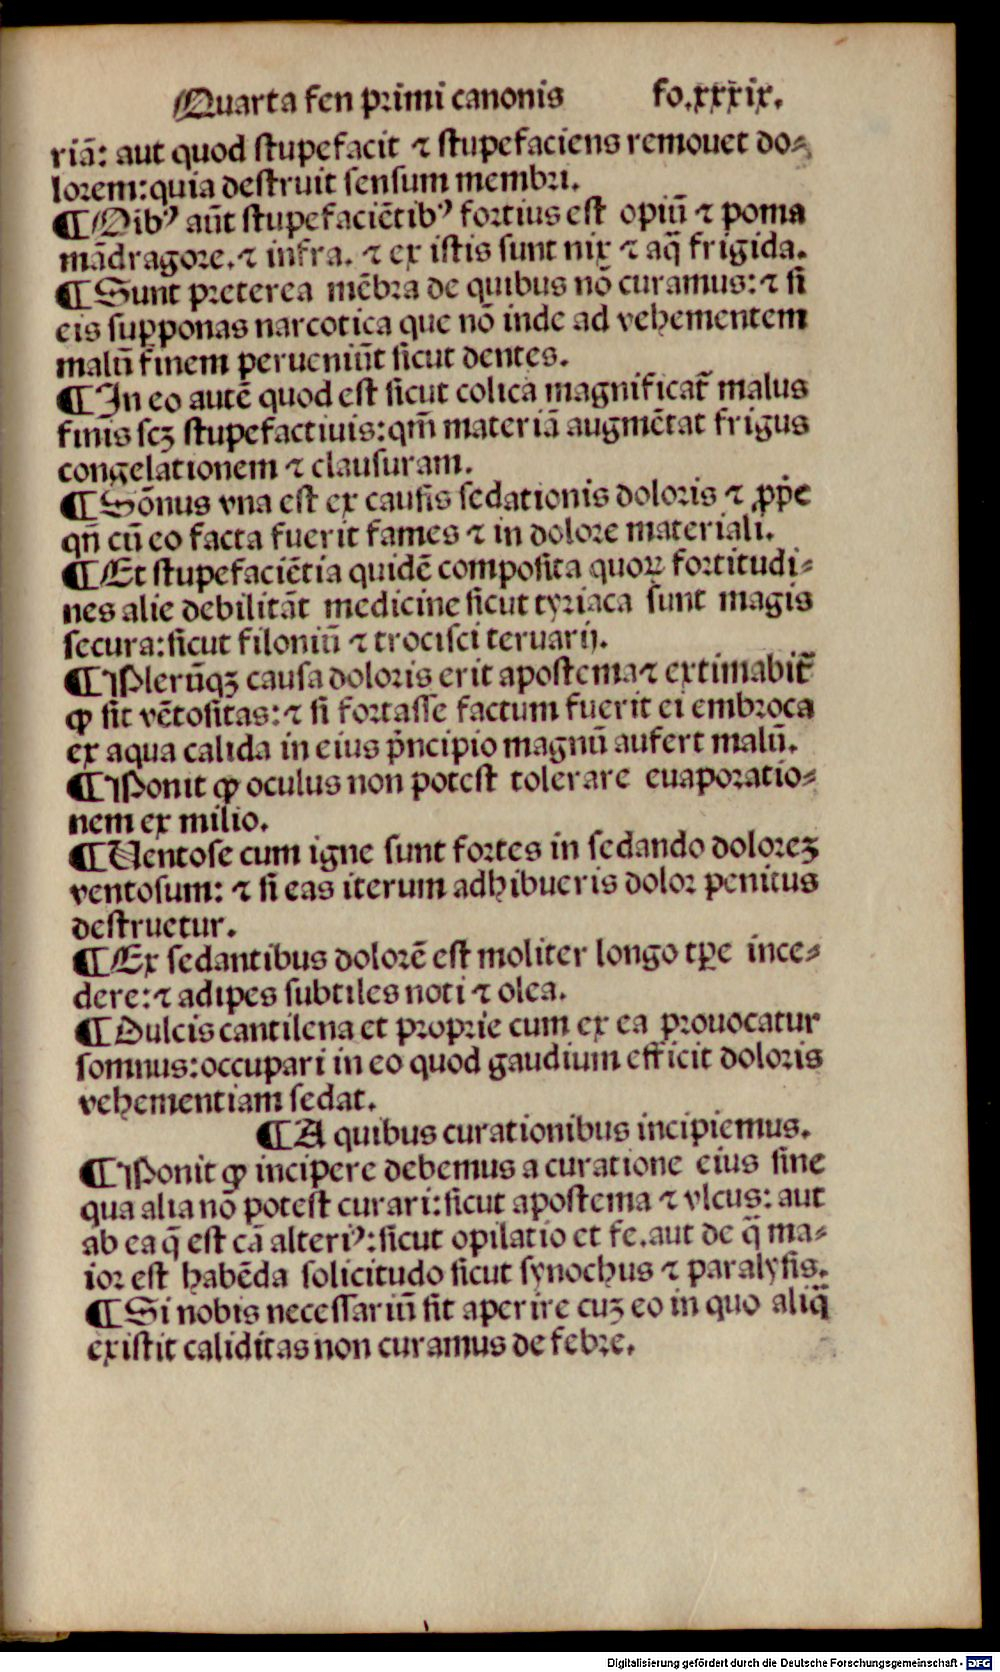 Quarta fen primi canonis fo.xxxix.
riã: aut quod stupefacit ⁊ stupefaciens remouet do-
lorem:quia destruit sensum membri.
¶Oibꝰ aũt stupefaciẽtibꝰ fortius est opiũ ⁊ poma
mãdragore.⁊ infra. ⁊ ex istis sunt nix ⁊ aq̃ frigida.
¶Sunt preterea mẽbra de quibus nõ curamus:⁊ si
eis supponas narcotica que nõ inde ad vehementem
malũ finem perueniũt sicut dentes.
¶In eo autẽ quod est sicut colica magnificat̃ malus
finis scꝫ stupefactiuis:qm̃ materiã augmẽtat frigus
congelationem ⁊ clausuram.
¶Sõnus vna est ex causis sedationis doloris ⁊ ꝓp̃e
qñ cũ eo facta fuerit fames ⁊ in dolore materiali.
¶Et stupefaciẽtia quidẽ composita quoꝝ fortitudi-
nes alie debilitãt medicine sicut tyriaca sunt magis
secura:sicut filoniũ ⁊ trocisci teruarij.
¶Plerũqꝫ causa doloris erit apostema⁊ extimabit̃
ꝙ sit vẽtositas:⁊ si fortasse factum fuerit ei embroca
ex aqua calida in eius p̃ncipio magnũ aufert malũ.
¶Ponit ꝙ oculus non potest tolerare euaporatio-
nem ex milio.
¶Uentose cum igne sunt fortes in sedando doloreꝫ
ventosum: ⁊ si eas iterum adhibueris dolor penitus
destruetur.
¶Ex sedantibus dolorẽ est moliter longo tp̃e ince-
dere:⁊ adipes subtiles noti ⁊ olea.
¶Dulcis cantilena et proprie cum ex ea prouocatur
somnus:occupari in eo quod gaudium efficit doloris
vehementiam sedat.
¶A quibus curationibus incipiemus.
¶Ponit ꝙ incipere debemus a curatione eius sine
qua alia nõ potest curari:sicut apostema ⁊ vlcus: aut
ab ea q̃ est cã alteriꝰ:sicut opilatio et fe.aut de q̃ ma-
ior est habẽda solicitudo sicut synochus ⁊ paralysis.
¶Si nobis necessariũ sit aperire cuꝫ eo in quo aliq̃
existit caliditas non curamus de febre.
Digitalisierung gefördert durch die Deutsche Forschungsgemeinschaft - DFG